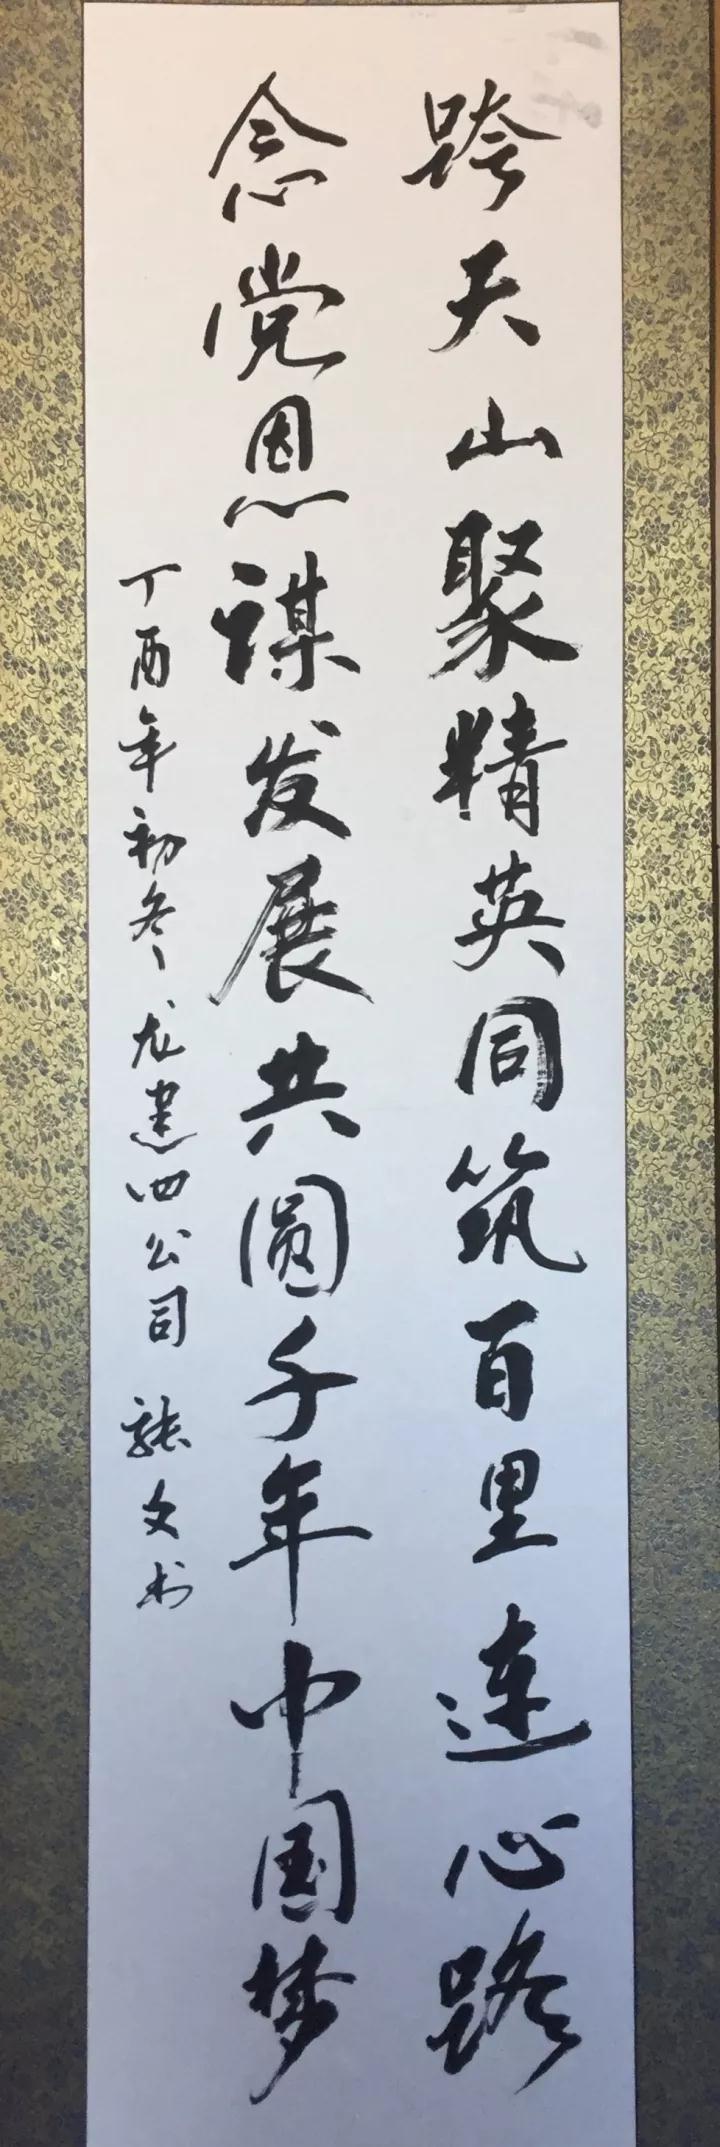 跨天山聚精英同筑百里连心路
念党恩谋发展共圆千年中国梦
丁酉年初冬龙建四公司 张文术